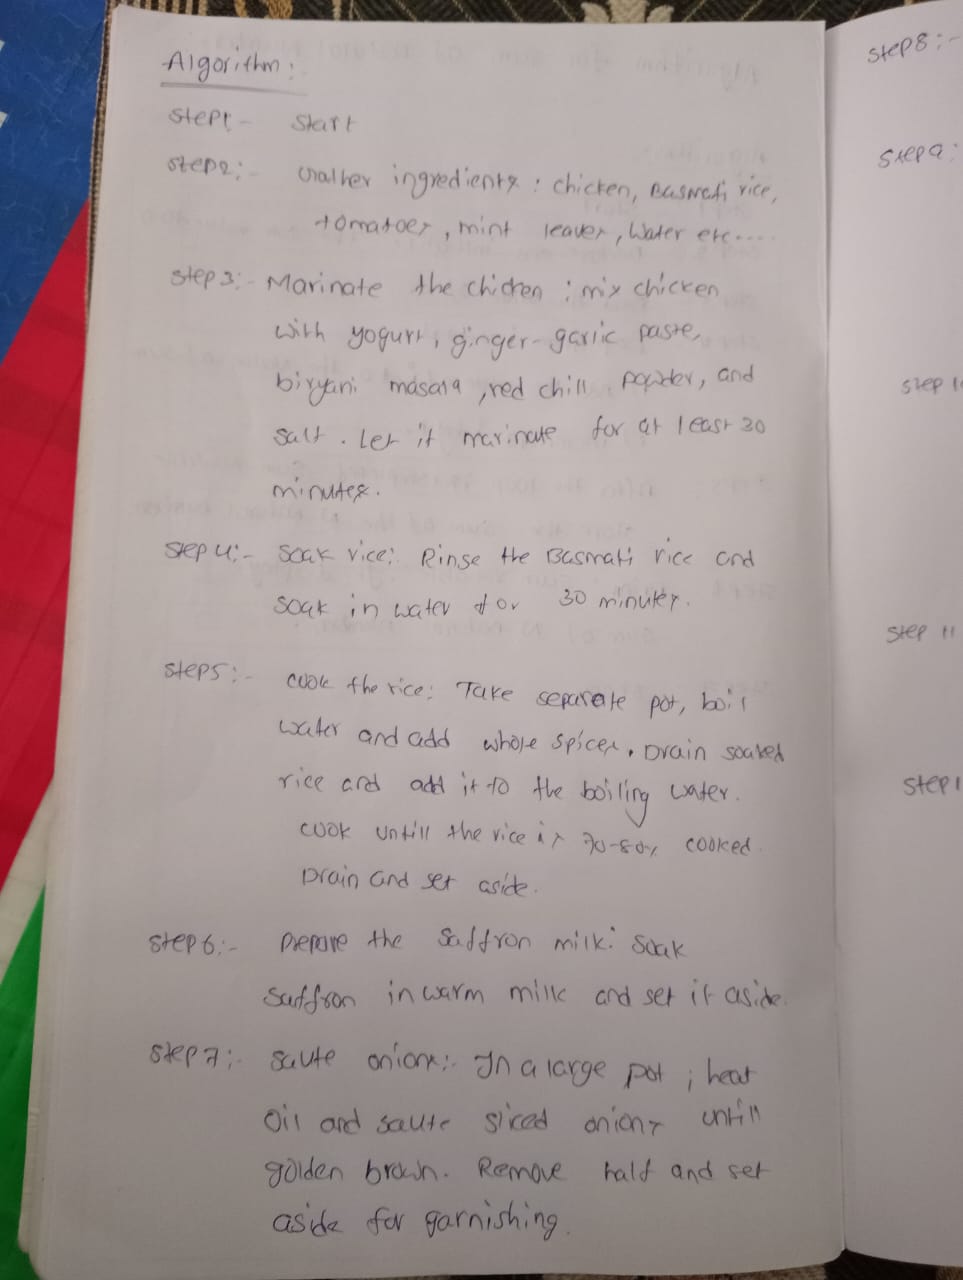 Algorithm:
Step1- Start
Step2:- Gather ingredients : chicken, Basmati rice,
tomatoes, mint leaves, Water etc....
Step 3:- Marinate the chicken : mix chicken
with yogurt, ginger-garlic paste,
biryani masala, red chill powder, and
salt. Let it marinate for at least 30
minutes.
Step 4:- Soak rice: Rinse the Basmati rice and
soak in water for 30 minutes.
Step5:- Cook the rice: Take separate pot, boil
water and add whole spices. Drain soaked
rice and add it to the boiling water.
Cook untill the rice is 70-80% cooked.
Drain and set aside.
Step 6:- Prepare the Saffron milk: Soak
Saffron in warm milk and set it aside.
Step 7:- Saute onions:- In a large pot ; heat
Oil and saute sliced onions untill
golden brown. Remove half and set
aside for garnishing.
Step8:-
Step9:
Step 1
Step 11
Step 1